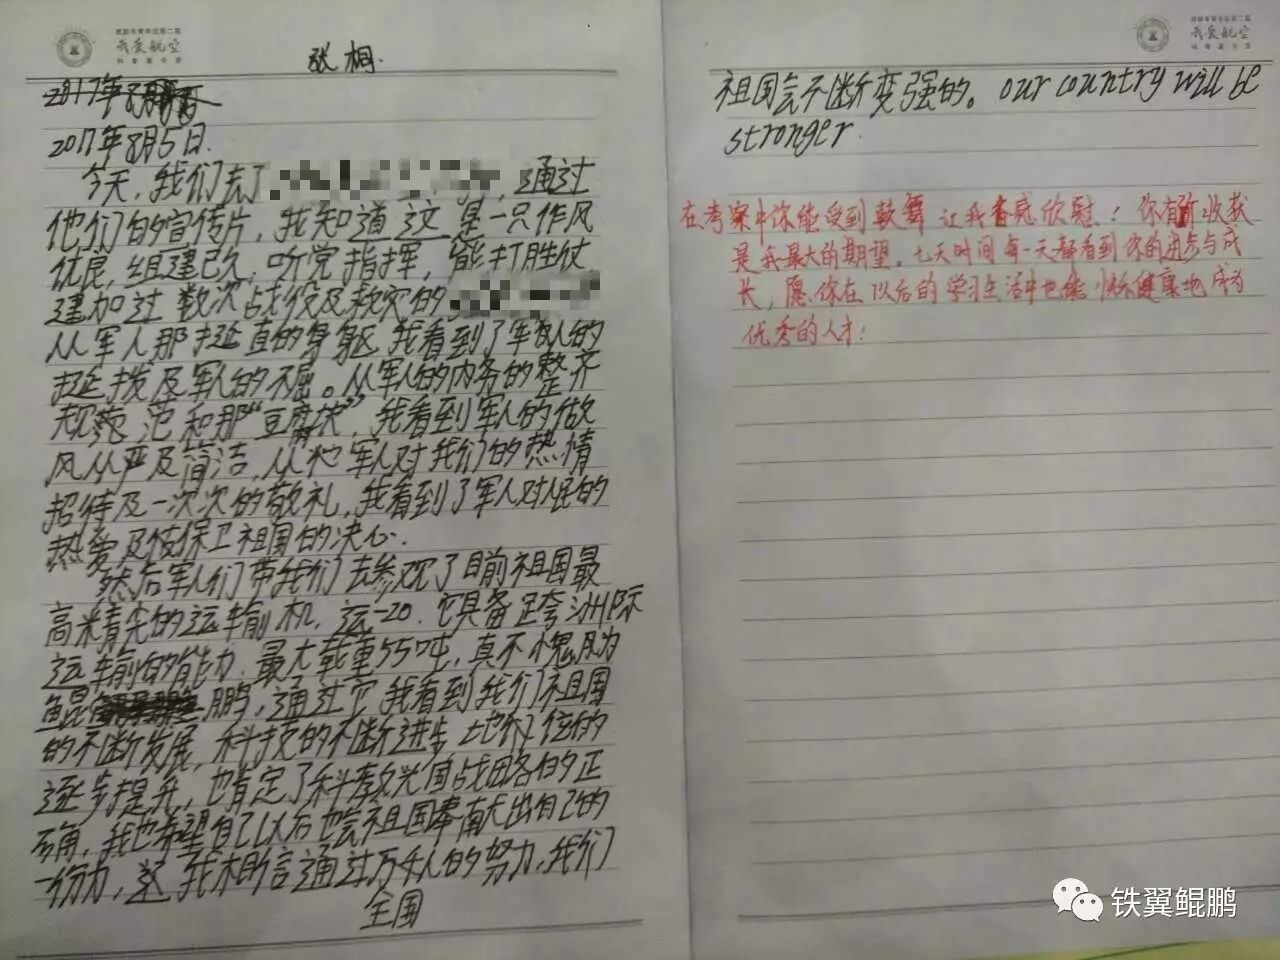 我爱航空
张桐.
2017年8月
2017年8月5日.
今天,我们去了,通过
他们的宣传片,我知道这是一只作风
优良,组建已久,听党指挥,能打胜仗
建加过数次战役及救灾的
从军人那挺直的身躯我看到了军人的
挺拨及军人的不屈。从军人的内务的整齐
规范和那“豆腐块”,我看到军人的做
风从严及简洁,从他军人对我们的热情
招待及一次次的敬礼,我看到了军人对人民的
热爱及保卫祖国的决心.
然后军人们带我们去参观了目前祖国最
高精尖的运输机,运-20.它具备跨洲际
运输的能力.最大载重55吨,真不愧为
鲲鹏,通过它我看到我们祖国
的不断发展,科技的不断进步地位的
逐步提升,也肯定了科教兴国战略的正
确,我也希望自己以后也会祖国奉献出自己的
一份力,我相信通过万千人的努力,我们
全国
我爱航空
祖国会不断变强的。our country will be
stronger.
在考察中你能受到鼓舞 让我备感欣慰!你有所收获
是我最大的期望。七天时间每一天都看到你的进步与成
长,愿你在以后的学习生活中也能快乐健康地成为
优秀的人才!
铁翼鲲鹏